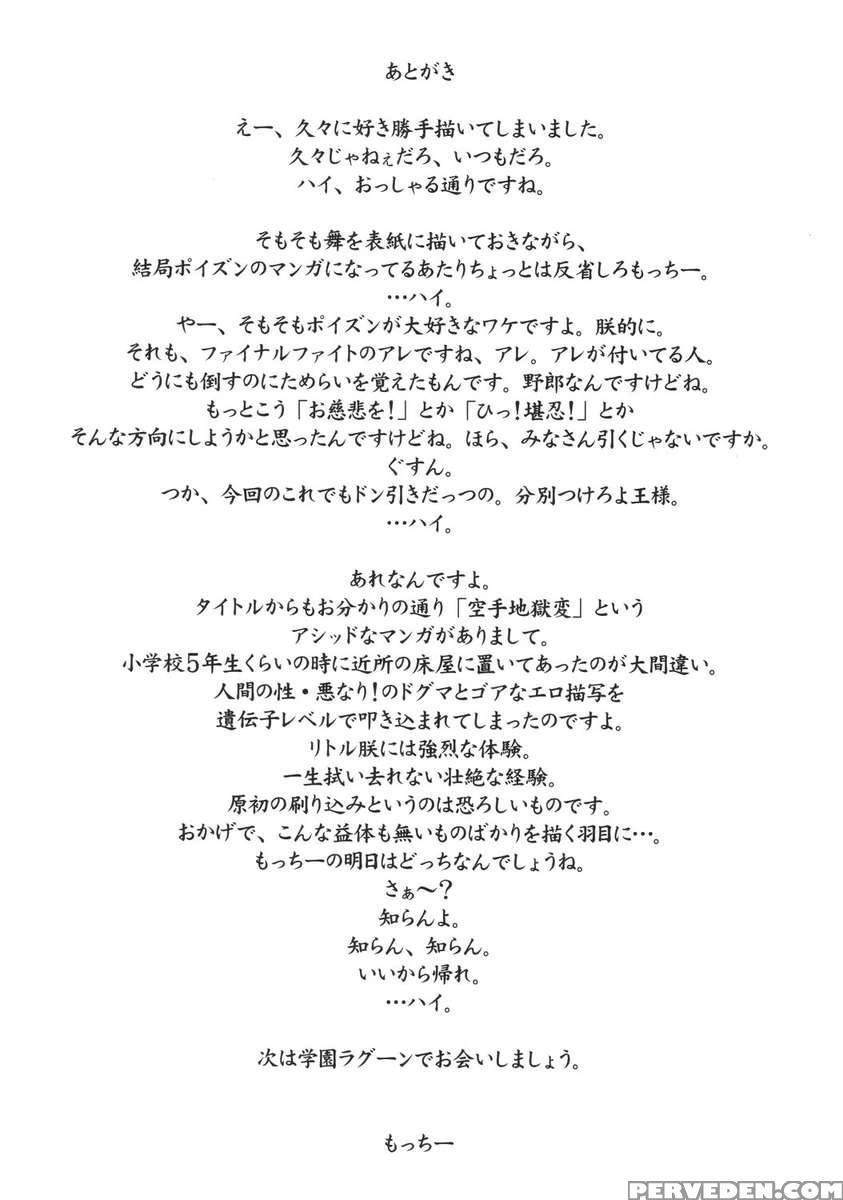 あとがき
えー、久々に好き勝手描いてしまいました。
久々じゃねぇだろ、いつもだろ。
ハイ、おっしゃる通りですね。
そもそも舞を表紙に描いておきながら、
結局ポイズンのマンガになってるあたりちょっとは反省しろもっちー。
…ハイ。
やー、そもそもポイズンが大好きなワケですよ。朕的に。
それも、ファイナルファイトのアレですね、アレ。アレが付いてる人。
どうにも倒すのにためらいを覚えたもんです。野郎なんですけどね。
もっとこう「お慈悲を!」とか「ひっ!堪忍!」とか
そんな方向にしようかと思ったんですけどね。ほら、みなさん引くじゃないですか。
ぐすん。
つか、今回のこれでもドン引きだっつの。分別つけろよ王様。
…ハイ。
あれなんですよ。
タイトルからもお分かりの通り「空手地獄変」という
アシッドなマンガがありまして。
小学校5年生くらいの時に近所の床屋に置いてあったのが大間違い。
人間の性・悪なり!のドグマとゴアなエロ描写を
遺伝子レベルで叩き込まれてしまったのですよ。
リトル朕には強烈な体験。
一生拭い去れない壮絶な経験。
原初の刷り込みというのは恐ろしいものです。
おかげで、こんな益体も無いものばかりを描く羽目に…。
もっちーの明日はどっちなんでしょうね。
さぁ〜?
知らんよ。
知らん、知らん。
いいから帰れ。
…ハイ。
次は学園ラグーンでお会いしましょう。
もっちー
PERVEDEN.COM